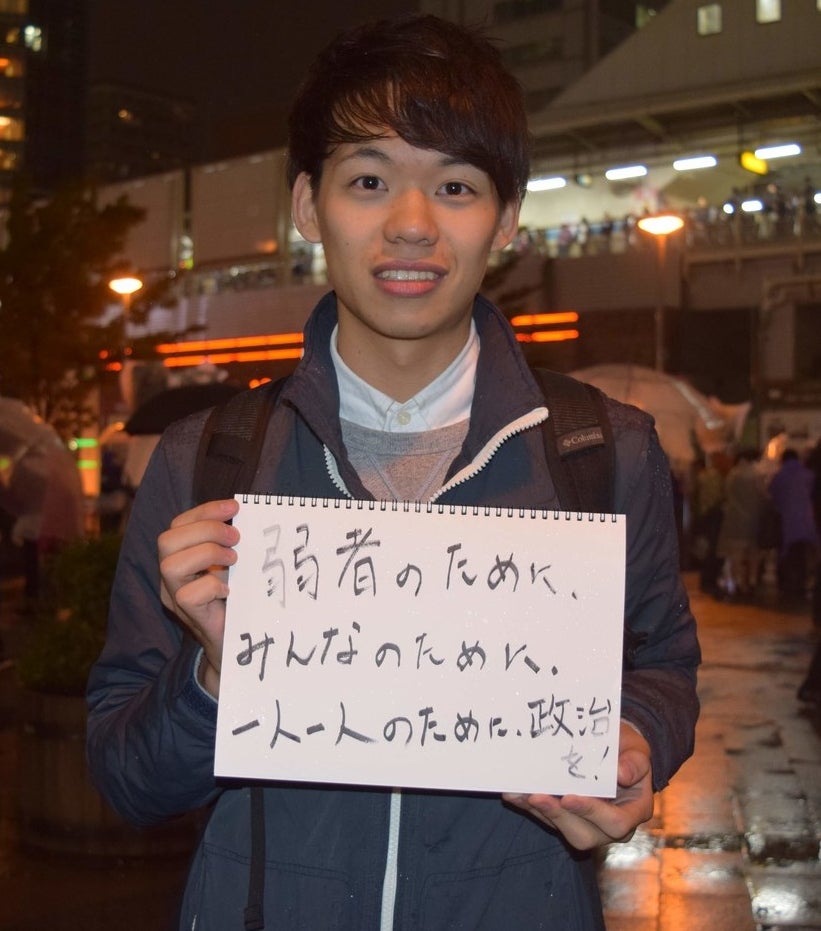 弱者のために、
みんなのために、
一人一人のために、政治
を!
Columbia